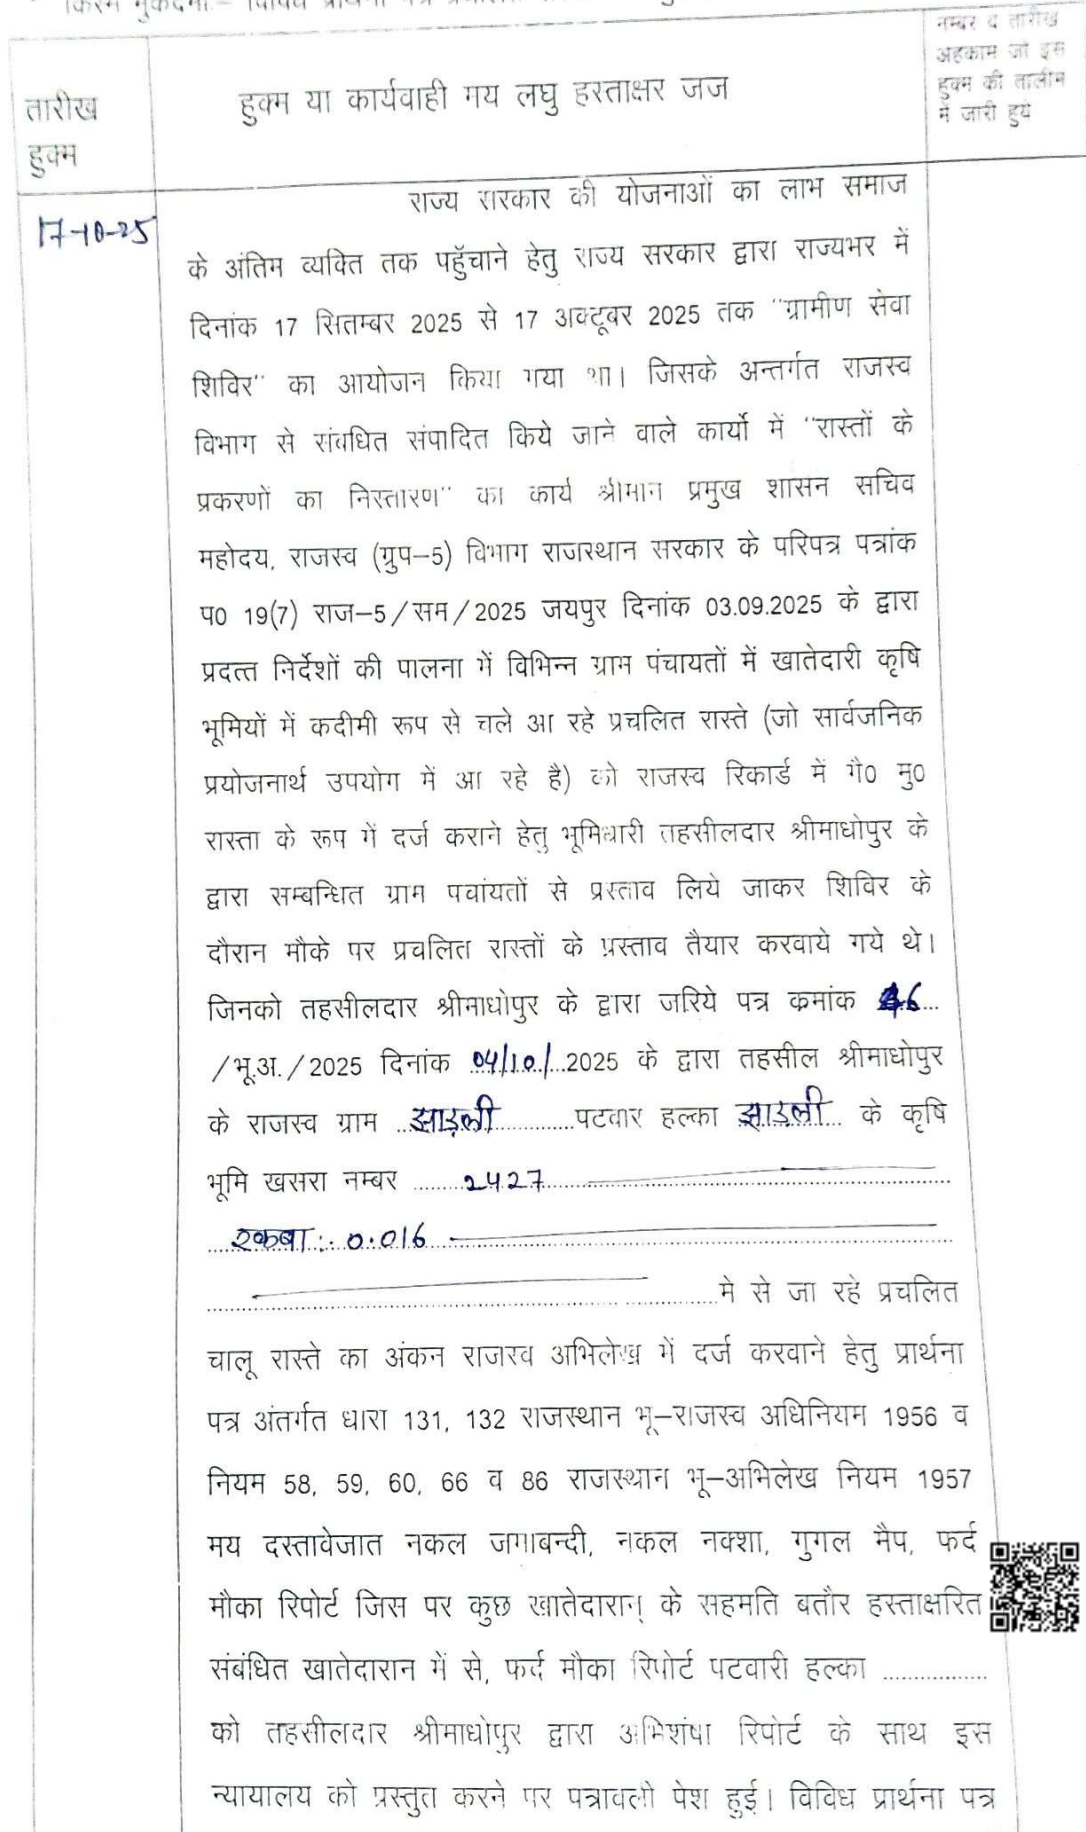 नम्बर व तारीख
अहकाम जो इस
हुक्म की तालीम
में जारी हुये
तारीख
हुक्म
हुक्म या कार्यवाही मय लघु हस्ताक्षर जज
17-10-25
राज्य सरकार की योजनाओं का लाभ समाज
के अंतिम व्यक्ति तक पहुँचाने हेतु राज्य सरकार द्वारा राज्यभर में
दिनांक 17 सितम्बर 2025 से 17 अक्टूबर 2025 तक "ग्रामीण सेवा
शिविर" का आयोजन किया गया था। जिसके अन्तर्गत राजस्व
विभाग से संबधित संपादित किये जाने वाले कार्यो में "रास्तों के
प्रकरणों का निस्तारण" का कार्य श्रीमान प्रमुख शासन सचिव
महोदय, राजस्व (ग्रुप–5) विभाग राजस्थान सरकार के परिपत्र पत्रांक
प0 19(7) राज–5/सम/2025 जयपुर दिनांक 03.09.2025 के द्वारा
प्रदत्त निर्देशों की पालना में विभिन्न ग्राम पंचायतों में खातेदारी कृषि
भूमियों में कदीमी रूप से चले आ रहे प्रचलित रास्ते (जो सार्वजनिक
प्रयोजनार्थ उपयोग में आ रहे है) को राजस्व रिकार्ड में गै0 मु0
रास्ता के रूप में दर्ज कराने हेतु भूमिधारी तहसीलदार श्रीमाधोपुर के
द्वारा सम्बन्धित ग्राम पचांयतों से प्रस्ताव लिये जाकर शिविर के
दौरान मौके पर प्रचलित रास्तों के प्रस्ताव तैयार करवाये गये थे।
जिनको तहसीलदार श्रीमाधोपुर के द्वारा जरिये पत्र कमांक ...
/भू.अ./2025 दिनांक 04/10/...2025 के द्वारा तहसील श्रीमाधोपुर
के राजस्व ग्राम ..झाड़ली...........पटवार हल्का झाडली... के कृषि
भूमि खसरा नम्बर ........2427........
....रकबा:. 0.016
........में से जा रहे प्रचलित
चालू रास्ते का अंकन राजस्व अभिलेख में दर्ज करवाने हेतु प्रार्थना
पत्र अंतर्गत धारा 131, 132 राजस्थान भू–राजस्व अधिनियम 1956 व
नियम 58, 59, 60, 66 व 86 राजस्थान भू–अभिलेख नियम 1957
मय दस्तावेजात नकल जमाबन्दी, नकल नक्शा, गुगल मैप, फर्द
मौका रिपोर्ट जिस पर कुछ खातेदारान् के सहमति बतौर हस्ताक्षरित
संबंधित खातेदारान में से, फर्द मौका रिपोर्ट पटवारी हल्का .................
को तहसीलदार श्रीमाधोपुर द्वारा अभिशंषा रिपोर्ट के साथ इस
न्यायालय को प्रस्तुत करने पर पत्रावली पेश हुई। विविध प्रार्थना पत्र